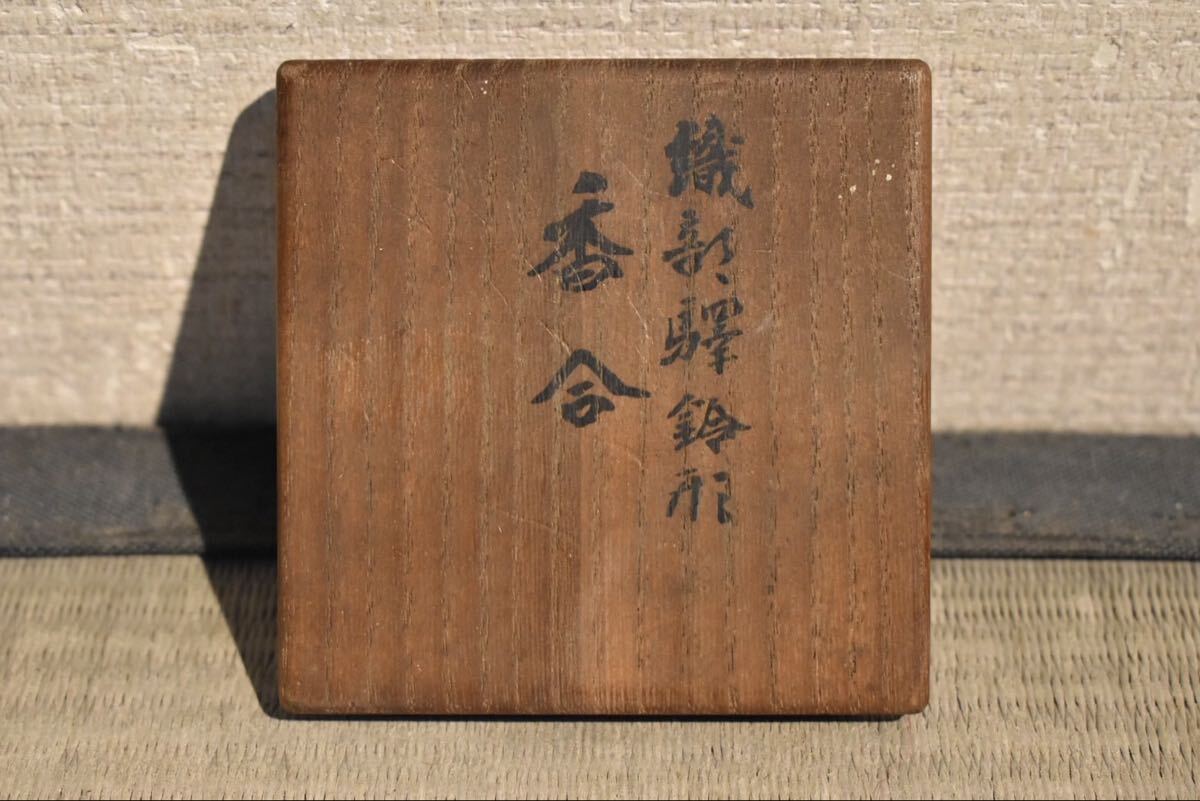 織部驛鈴形
香合